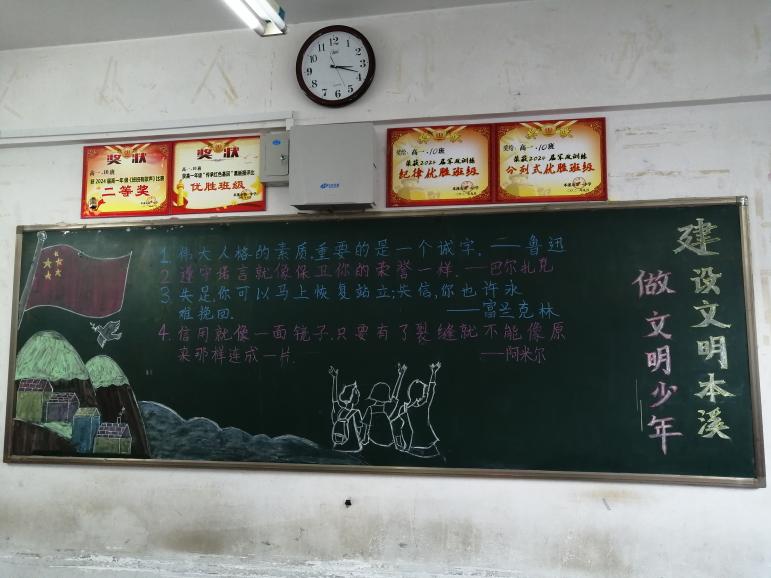 12
1
2
3
4
5
6
7
8
9
10
11
奖状
高一.10班
获2024届高一年级《班班有歌声》比赛
二等奖
奖状
高一.10班
获高一年级“传承红色基因”黑板报评比
优胜班级
奖状
奖给:高一.10班
荣获2024届军政训练
纪律优胜班级
奖状
奖给:高一.10班
荣获2024届军政训练
分列式优胜班级
1 伟大人格的素质,重要的是一个诚字. ——鲁迅
2 遵守诺言就像保卫你的荣誉一样. ——巴尔扎克
3 失足,你可以马上恢复站立;失信,你也许永
难挽回. ——富兰克林
4. 信用就像一面镜子.只要有了裂缝就不能像原
来那样连成一片. ——阿米尔
建设文明本溪
做文明少年